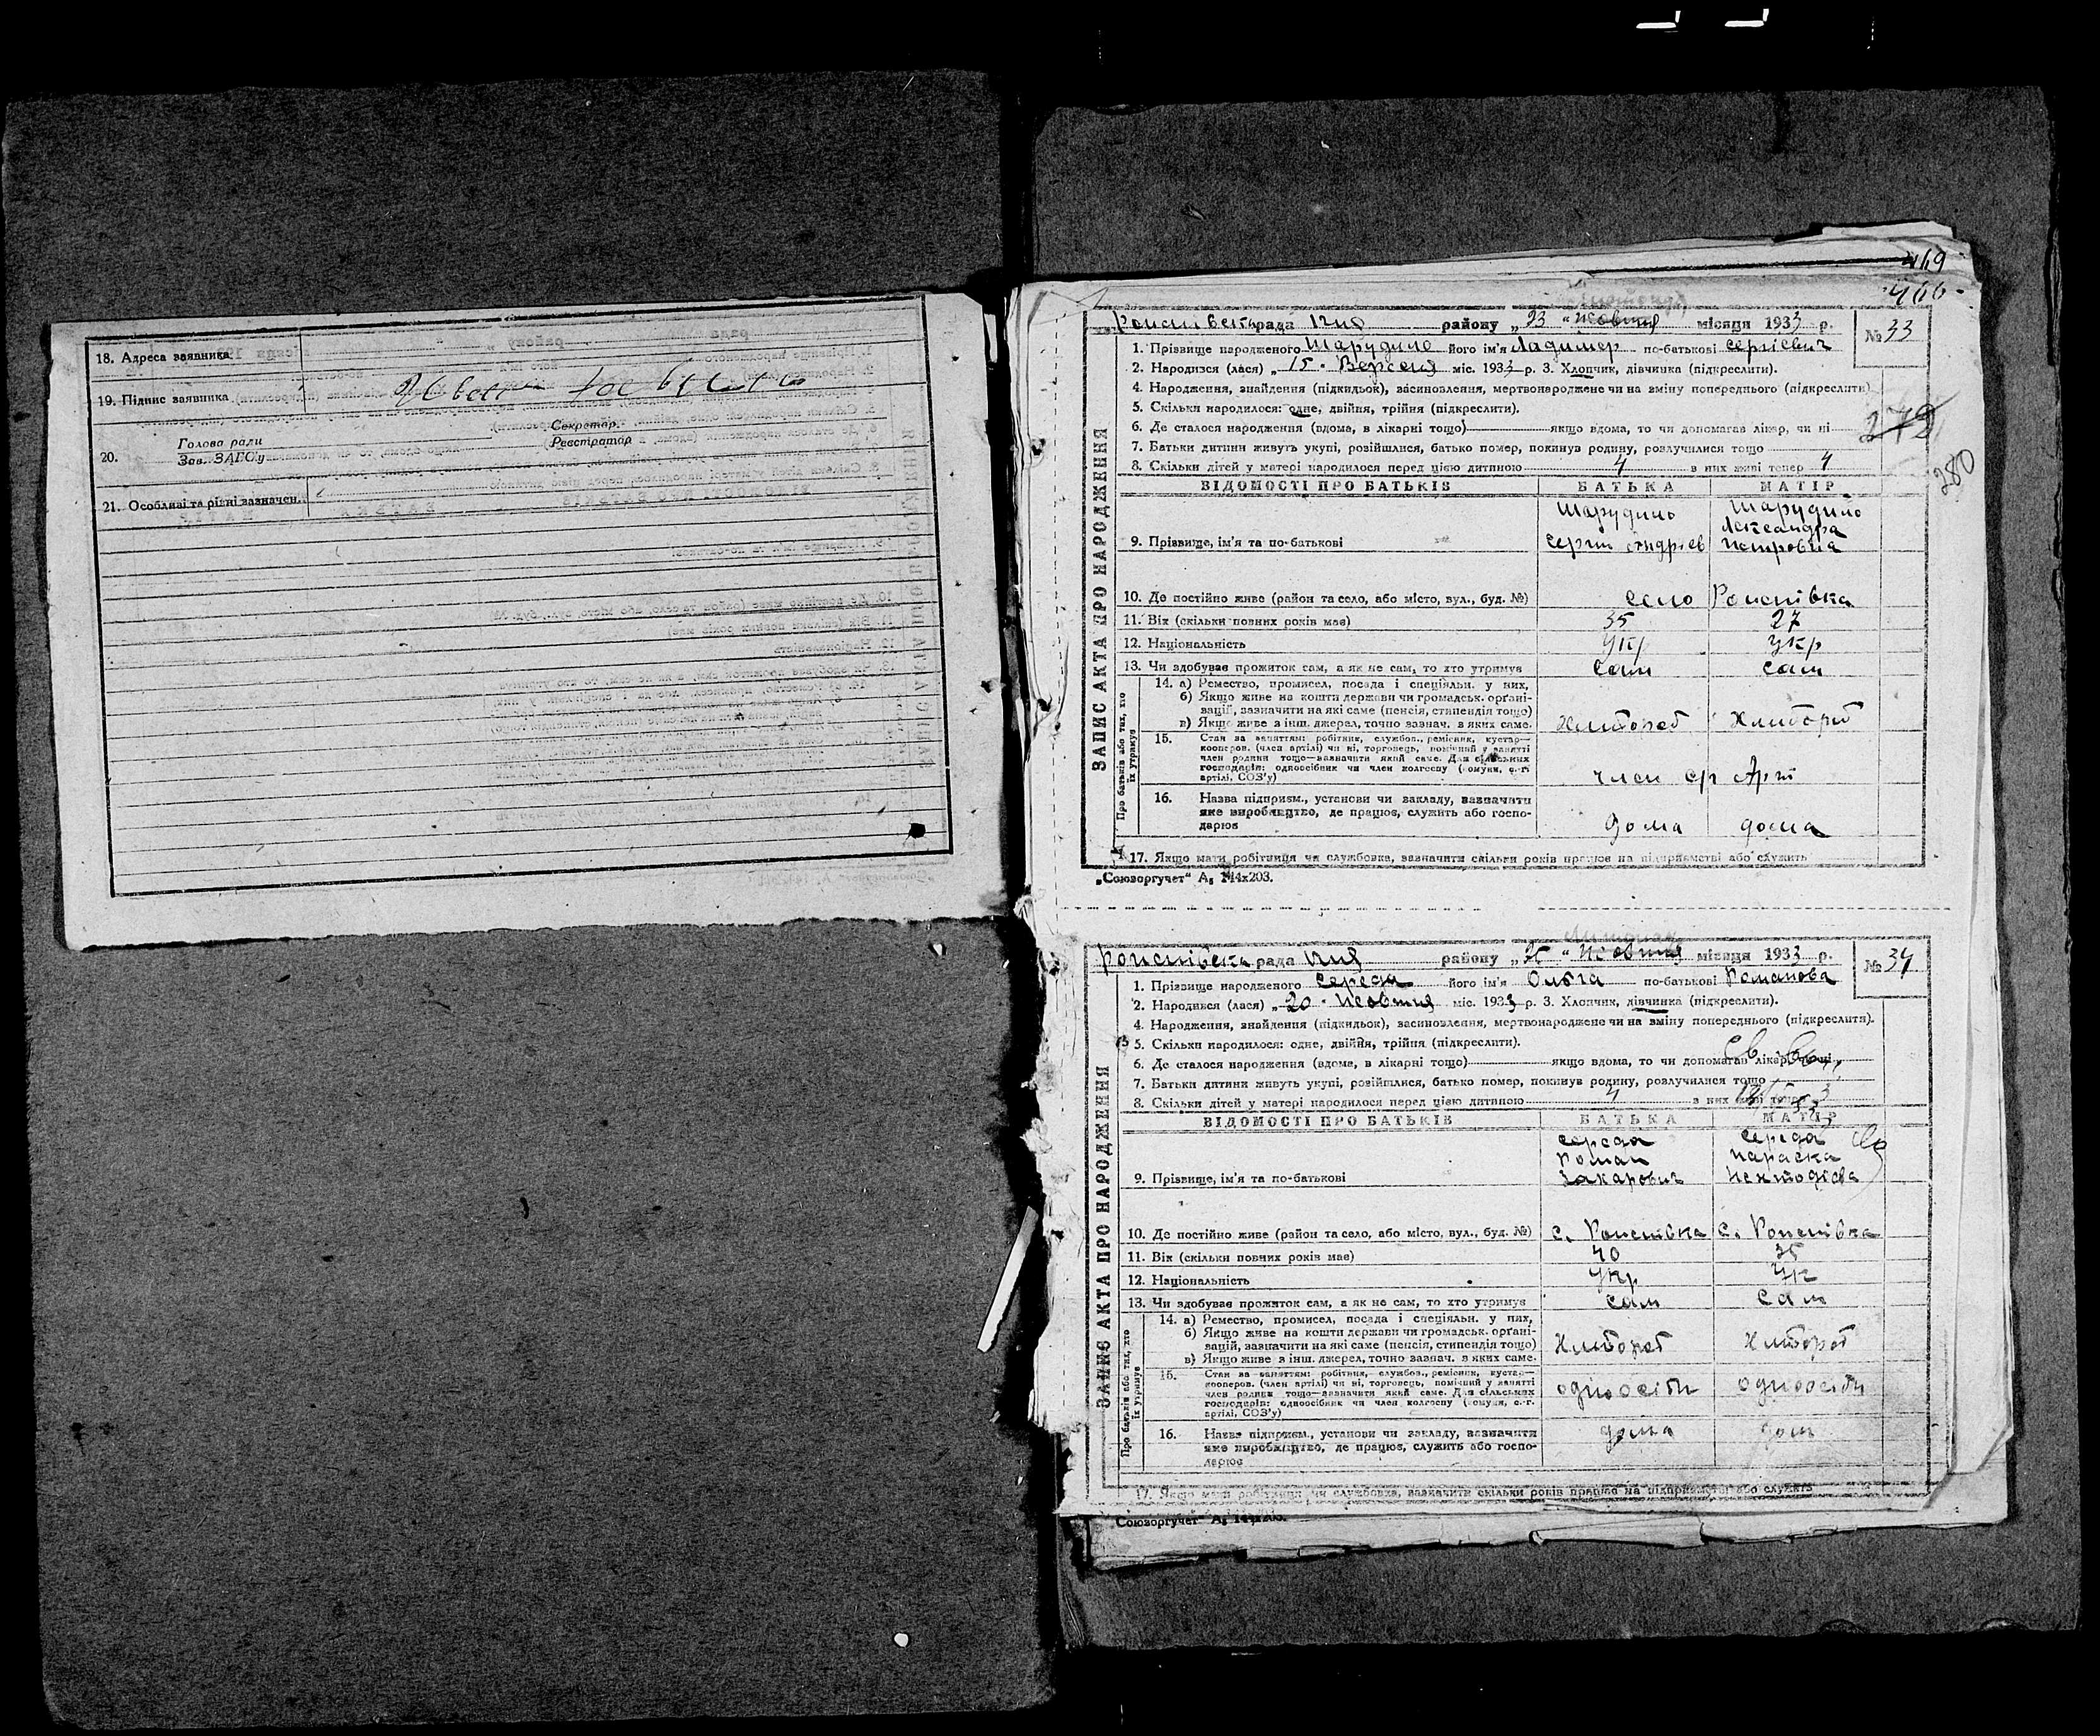 18. Адреса заявника
19. Підпис заявника
20. Голова ради
Зав. ЗАГС'у
Секретар
Реєстратор
21. Особливі та різні зазначен.
469
466
рада района „ 23 " Жовтня місяця 1933 р.
№ 33
1. Прізвище народженого Шарудило його ім'я Ладимер по-батькові Сергієвич
2. Народився (лася) „ 15 Вересня міс. 1933 р. 3. Хлопчик, дівчинка (підкреслити).
4. Народження, знайдення (підкидьок), засиновлення, мертвонароджене чи на зміну попереднього (підкреслити)
5. Скільки народилося: одне, двійня, трійня (підкреслити).
6. Де сталося народження (вдома, в лікарні тощо) якщо вдома, то чи допомагав лікар, чи ні
279
7. Батьки дитини живуть укупі, розійшлися, батько помер, покинув родину, розлучилися тощо
8. Скільки дітей у матері народилося перед цією дитиною 4 з них живі тепер 4
280
ВІДОМОСТІ ПРО БАТЬКІВ БАТЬКА МАТІР
ЗАПИС АКТА ПРО НАРОДЖЕННЯ
9. Прізвище, ім'я та по-батькові
Шарудило
Шарудило
Петровна
10. Де постійно живе (район та село, або місто, вул., буд. №) село
11. Вік (скільки повних років має) 35 27
12. Національність Укр Укр
13. Чи здобуває прожиток сам, а як не сам, то хто утримує сам сам
Про батьків або тих, хто їх утримує
14. а) Ремество, промисел, посада і спеціяльн. у них,
б) Якщо живе на кошти держави чи громадськ. орґані-
зації, зазначити на які саме (пенсія, стипендія тощо)
в) Якщо живе з інш. джерел, точно зазнач. з яких саме.
Хлибороб Хлибороб
15. Стан за заняттям: робітник, службов., ремісник, кустар—
кооперов. (член артілі) чи ні, торговець, помічний у занятті
член родини тощо—зазначити який саме. Для сільських
господарів: одноосібник чи член колгоспу (комуни, с.-г.
артілі, СОЗ'у)
член ср Арт
16. Назва підприєм., установи чи закладу, зазначити
яке виробництво, де працює, служить або госпо-
дарює
дома дома
17. Якщо мати робітниця чи службовка, зазначити скільки років працює на підприємстві або служить
„Союзоргучет" А₅ 144х203.
рада района „ 25 " Жовтня місяця 1933 р.
№ 34
1. Прізвище народженого Середа його ім'я Ольга по-батькові Романова
2. Народився (лася) „ 20 Жовтня міс. 1933 р. 3. Хлопчик, дівчинка (підкреслити).
4. Народження, знайдення (підкидьок), засиновлення, мертвонароджене чи на зміну попереднього (підкреслити).
5. Скільки народилося: одне, двійня, трійня (підкреслити).
6. Де сталося народження (вдома, в лікарні тощо) якщо вдома, то чи допомагав лікар, чи ні
7. Батьки дитини живуть укупі, розійшлися, батько помер, покинув родину, розлучилися тощо
8. Скільки дітей у матері народилося перед цією дитиною 4 з них живі тепер 3
ВІДОМОСТІ ПРО БАТЬКІВ БАТЬКА МАТІР
ЗАПИС АКТА ПРО НАРОДЖЕННЯ
Середа Середа
Роман Параска
9. Прізвище, ім'я та по-батькові Захарович
10. Де постійно живе (район та село, або місто, вул., буд. №) с. с.
11. Вік (скільки повних років має) 40 35
12. Національність Укр Ук
13. Чи здобуває прожиток сам, а як не сам, то хто утримує сам сам
Про батьків або тих, хто їх утримує
14. а) Ремество, промисел, посада і спеціяльн. у них,
б) Якщо живе на кошти держави чи громадськ. орґані-
зацій, зазначити на які саме (пенсія, стипендія тощо)
в) Якщо живе з інш. джерел, точно зазнач. з яких саме.
Хлибороб Хлибороб
15. Стан за заняттям: робітник, службов., ремісник, кустар—
кооперов. (член артілі) чи ні, торговець, помічний у занятті
член родини тощо—зазначити який саме. Для сільських
господарів: одноосібник чи член колгоспу (комуни, с.-г.
артілі, СОЗ'у)
одноосібн одноосібн
16. Назва підприєм., установи чи закладу, зазначити
яке виробництво, де працює, служить або госпо-
дарює
дома дом
17. Якщо мати робітниця чи службовка, зазначити скільки років працює на підприємстві або служить
Союзоргучет" А₅ 144х203.